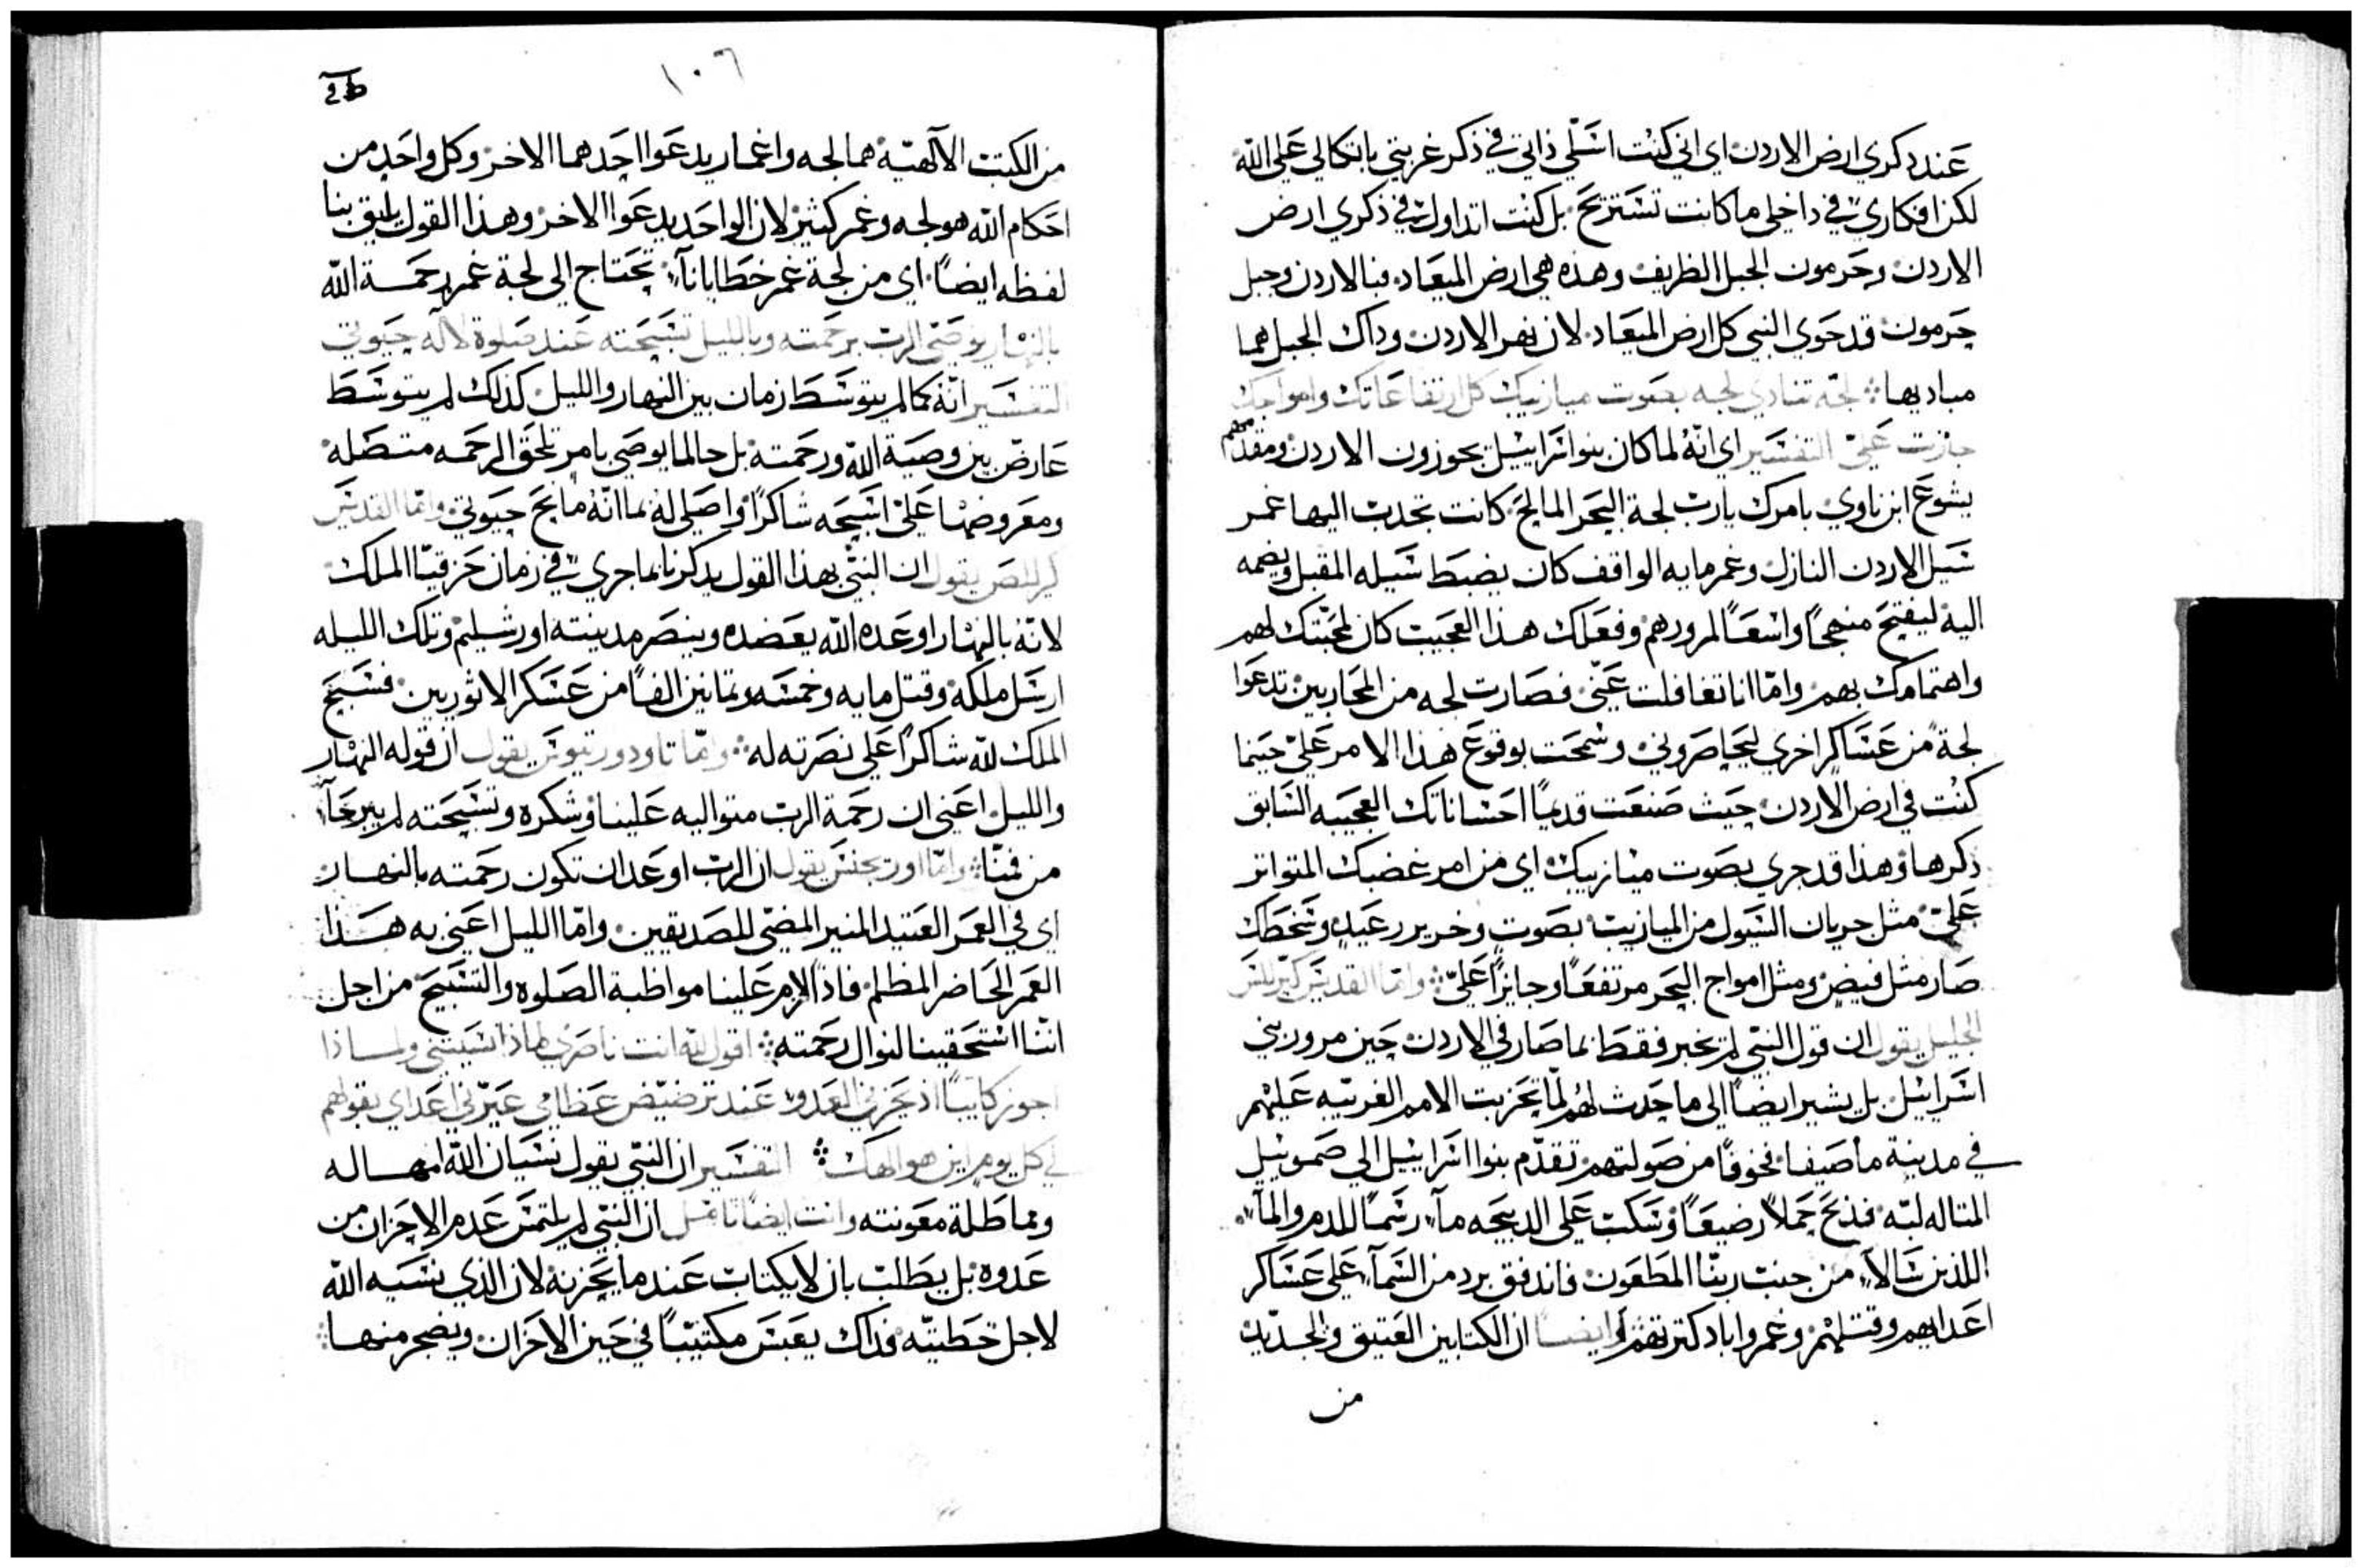 عند دكري ارض الاردن اي اني كنت اتسلي ذاتي في ذكر غربتي باتكالي علي الله
لكن افكاري في داخلي ما كانت تستريح بل كنت اتداول في ذكري ارض
الاردن وحرمون الجبل الظريف وهذه هي ارض الميعاد فبالاردن وجبل
حرمون قد حوي النبي كل ارض الميعاد لان نهر الاردن وداك الجبل هما
مباديها لجه تنادي لجه بصوت ميازيبك كل ارتفاعاتك وامواجك
جازت عليّ التفسير اي انه لما كان بنو اسراييل يجوزون الاردن ومقدمهم
يشوع ابن ناوي بامرك يا رب لجة البحر المالح كانت تجدب اليها غمر
سيل الاردن النازل وغمر مايه الواقف كان يضبط سيله المقبل ويضمه
اليه ليفتح منهجاً واسعاً لمرورهم وفعلك هذا العجيب كان لمحبتك لهم
واهتمامك بهم واما انا تغافلت عني فصارت لجه من المحاربين تدعوا
لجة من عساكر اخري ليحاصروني وسمحت بوقوع هذا الامر علي حينما
كنت في ارض الاردن حيث صنعت قديماً احساناتك العجيبه السابق
ذكرها وهذا قد جري بصوت ميازيبك اي من امر غضبك المتواتر
عليّ مثل جريان السيول من الميازيب بصوت وخرير رعيد وسخطك
صار مثل فيض ومثل امواج البحر مرتفعاً وجايزاً عليّ واما القديس كيرللس
الجليل يقول ان قول النبي لم يخبر فقط بما صار في الاردن حين مرور بني
اسراييل بل يشير ايضاً الي ما حدث لهم لما تحزبت الامم الغريبه عليهم
في مدينة ماصيفا فخوفاً من صولتهم تقدم بنوا اسراييل الي صمويل
المتاله لبه فذبح حملاً رضيعاً وسكب علي الدبيحه مآء رسماً للدم والمآء
اللذين سالا من جنب ربنا المطعون فاندفق برد من السمآء علي عساكر
اعدايهم وقتلهم وغمر واباد كترتهم وايضاً ان الكتابين العتيق والجديد
من
١٠٦
من الكتب الالهيه هما لجه واغمار يدعوا احدهما الاخر وكل واحد من
احكام الله هو لجه وغمر كثير لان الواحد يدعوا الاخر وهذا القول يليق بنا
لفظه ايضاً اي من لجة غمر خطايانا نحتاج الي لجة غمر رحمة الله
بالنهار يوصي الرب برحمته وبالليل تسبحته عند صلوة لاله حيوتي
التفسير انه كما لم يتوسط زمان بين النهار والليل كذلك لم يتوسط
عارض بين وصية الله ورحمته بل حالما يوصي بامر تلحق الرحمه متصله
ومعروضها علي اسبحه شاكراً واصلي له بما انه مانح حيوتي واما القديس
كيرللص يقول ان النبي بهذا القول يدكرنا بما جري في زمان حزقيا الملك
لانه بالنهار اوعده الله يعضده وينصر مدينته اورشليم وتلك الليله
ارسل ملكه وقتل مايه وخمسه وتمانين الفاً من عسكر الاثوريين فسبح
الملك لله شاكراً علي نصرته له واما تاودوريتوس يقول ان قوله النهار
والليل اعني ان رحمة الرب متواليه علينا وشكره وتسبحته لم يبرحا
من فمنا واما اوريجنس يقول ان الرب اوعد ان تكون رحمته بالنهار
اي في العمر العتيد المنير المضي للصديقين واما الليل اعني به هذا
العمر الحاضر المظلم فاذا الامر علينا مواظبة الصلوه والتسبيح من اجل
اننا استحقينا لنوال رحمته اقول لله انت ناصري لماذا نسيتني ولماذا
اجوز كايباً اذ يحزني العدو عند ترضيض عظامي عيرني اعداي بقولهم
لي كل يوم اين هو الهك التفسير ان النبي يقول نسيان الله امهاله
ومماطلة معونته وانت ايضاً تامل ان النبي لم يلتمس عدم الاحزان من
عدوه بل يطلب بان لا يكتاب عندما يحزنه لان الذي نسيه الله
لاجل خطيته فداك يعبس مكتيباً في حين الاحزان ويضجر منها